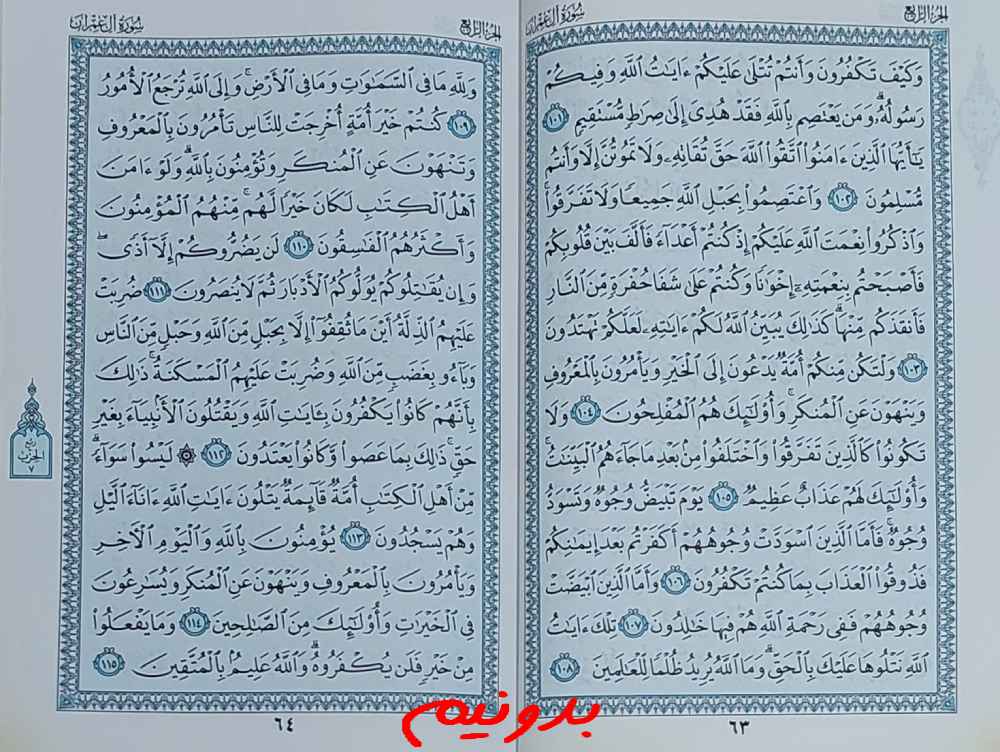 الجزء الرابع
سورة آل عمران
وَكَيْفَ تَكْفُرُونَ وَأَنتُمْ تُتْلَىٰ عَلَيْكُمْ ءَايَٰتُ ٱللَّهِ وَفِيكُمْ
رَسُولُهُۥ وَمَن يَعْتَصِم بِٱللَّهِ فَقَدْ هُدِىَ إِلَىٰ صِرَٰطٍ مُّسْتَقِيمٍ ١٠١
يَٰٓأَيُّهَا ٱلَّذِينَ ءَامَنُوا۟ ٱتَّقُوا۟ ٱللَّهَ حَقَّ تُقَاتِهِۦ وَلَا تَمُوتُنَّ إِلَّا وَأَنتُم
مُّسْلِمُونَ ١٠٢ وَٱعْتَصِمُوا۟ بِحَبْلِ ٱللَّهِ جَمِيعًا وَلَا تَفَرَّقُوا۟ۚ
وَٱذْكُرُوا۟ نِعْمَتَ ٱللَّهِ عَلَيْكُمْ إِذْ كُنتُمْ أَعْدَآءً فَأَلَّفَ بَيْنَ قُلُوبِكُمْ
فَأَصْبَحْتُم بِنِعْمَتِهِۦٓ إِخْوَٰنًا وَكُنتُمْ عَلَىٰ شَفَا حُفْرَةٍ مِّنَ ٱلنَّارِ
فَأَنقَذَكُم مِّنْهَاۗ كَذَٰلِكَ يُبَيِّنُ ٱللَّهُ لَكُمْ ءَايَٰتِهِۦ لَعَلَّكُمْ تَهْتَدُونَ
١٠٣ وَلْتَكُن مِّنكُمْ أُمَّةٌ يَدْعُونَ إِلَى ٱلْخَيْرِ وَيَأْمُرُونَ بِٱلْمَعْرُوفِ
وَيَنْهَوْنَ عَنِ ٱلْمُنكَرِۚ وَأُو۟لَٰٓئِكَ هُمُ ٱلْمُفْلِحُونَ ١٠٤ وَلَا
تَكُونُوا۟ كَٱلَّذِينَ تَفَرَّقُوا۟ وَٱخْتَلَفُوا۟ مِنۢ بَعْدِ مَا جَآءَهُمُ ٱلْبَيِّنَٰتُۚ
وَأُو۟لَٰٓئِكَ لَهُمْ عَذَابٌ عَظِيمٌ ١٠٥ يَوْمَ تَبْيَضُّ وُجُوهٌ وَتَسْوَدُّ
وُجُوهٌۚ فَأَمَّا ٱلَّذِينَ ٱسْوَدَّتْ وُجُوهُهُمْ أَكَفَرْتُم بَعْدَ إِيمَٰنِكُمْ
فَذُوقُوا۟ ٱلْعَذَابَ بِمَا كُنتُمْ تَكْفُرُونَ ١٠٦ وَأَمَّا ٱلَّذِينَ ٱبْيَضَّتْ
وُجُوهُهُمْ فَفِى رَحْمَةِ ٱللَّهِ هُمْ فِيهَا خَٰلِدُونَ ١٠٧ تِلْكَ ءَايَٰتُ
ٱللَّهِ نَتْلُوهَا عَلَيْكَ بِٱلْحَقِّۗ وَمَا ٱللَّهُ يُرِيدُ ظُلْمًا لِّلْعَٰلَمِينَ ١٠٨
٦٣
الجزء الرابع
سورة آل عمران
وَلِلَّهِ مَا فِى ٱلسَّمَٰوَٰتِ وَمَا فِى ٱلْأَرْضِۚ وَإِلَى ٱللَّهِ تُرْجَعُ ٱلْأُمُورُ
١٠٩ كُنتُمْ خَيْرَ أُمَّةٍ أُخْرِجَتْ لِلنَّاسِ تَأْمُرُونَ بِٱلْمَعْرُوفِ
وَتَنْهَوْنَ عَنِ ٱلْمُنكَرِ وَتُؤْمِنُونَ بِٱللَّهِۗ وَلَوْ ءَامَنَ
أَهْلُ ٱلْكِتَٰبِ لَكَانَ خَيْرًا لَّهُمۚ مِّنْهُمُ ٱلْمُؤْمِنُونَ
وَأَكْثَرُهُمُ ٱلْفَٰسِقُونَ ١١٠ لَن يَضُرُّوكُمْ إِلَّآ أَذًىۖ
وَإِن يُقَٰتِلُوكُمْ يُوَلُّوكُمُ ٱلْأَدْبَارَ ثُمَّ لَا يُنصَرُونَ ١١١ ضُرِبَتْ
عَلَيْهِمُ ٱلذِّلَّةُ أَيْنَ مَا ثُقِفُوٓا۟ إِلَّا بِحَبْلٍ مِّنَ ٱللَّهِ وَحَبْلٍ مِّنَ ٱلنَّاسِ
وَبَآءُو بِغَضَبٍ مِّنَ ٱللَّهِ وَضُرِبَتْ عَلَيْهِمُ ٱلْمَسْكَنَةُۚ ذَٰلِكَ
بِأَنَّهُمْ كَانُوا۟ يَكْفُرُونَ بِـَٔايَٰتِ ٱللَّهِ وَيَقْتُلُونَ ٱلْأَنۢبِيَآءَ بِغَيْرِ
حَقٍّۚ ذَٰلِكَ بِمَا عَصَوا۟ وَّكَانُوا۟ يَعْتَدُونَ ١١٢ ۞ لَيْسُوا۟ سَوَآءًۗ
مِّنْ أَهْلِ ٱلْكِتَٰبِ أُمَّةٌ قَآئِمَةٌ يَتْلُونَ ءَايَٰتِ ٱللَّهِ ءَانَآءَ ٱلَّيْلِ
وَهُمْ يَسْجُدُونَ ١١٣ يُؤْمِنُونَ بِٱللَّهِ وَٱلْيَوْمِ ٱلْءَاخِرِ
وَيَأْمُرُونَ بِٱلْمَعْرُوفِ وَيَنْهَوْنَ عَنِ ٱلْمُنكَرِ وَيُسَٰرِعُونَ
فِى ٱلْخَيْرَٰتِ وَأُو۟لَٰٓئِكَ مِنَ ٱلصَّٰلِحِينَ ١١٤ وَمَا يَفْعَلُوا۟
مِنْ خَيْرٍ فَلَن يُكْفَرُوهُۗ وَٱللَّهُ عَلِيمٌۢ بِٱلْمُتَّقِينَ ١١٥
٦٤
ربع
الحزب
٧
بدونیم